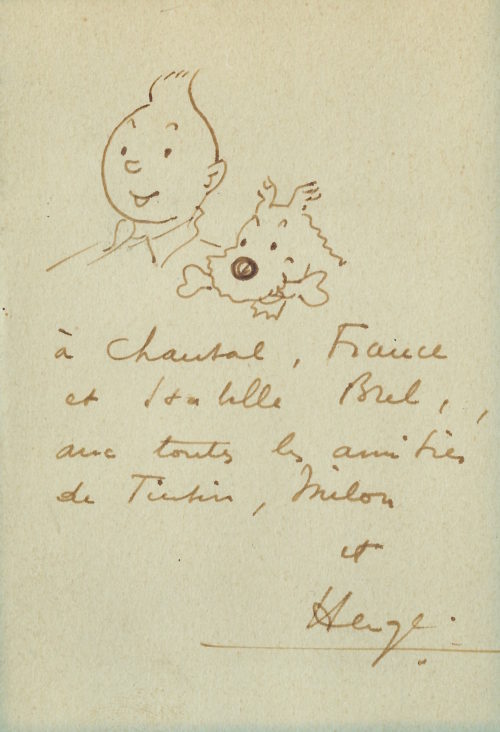 à Chantal, France
et Isabelle Brel,
avec toutes les amitiés
de Tintin, Milou
et
Hergé.